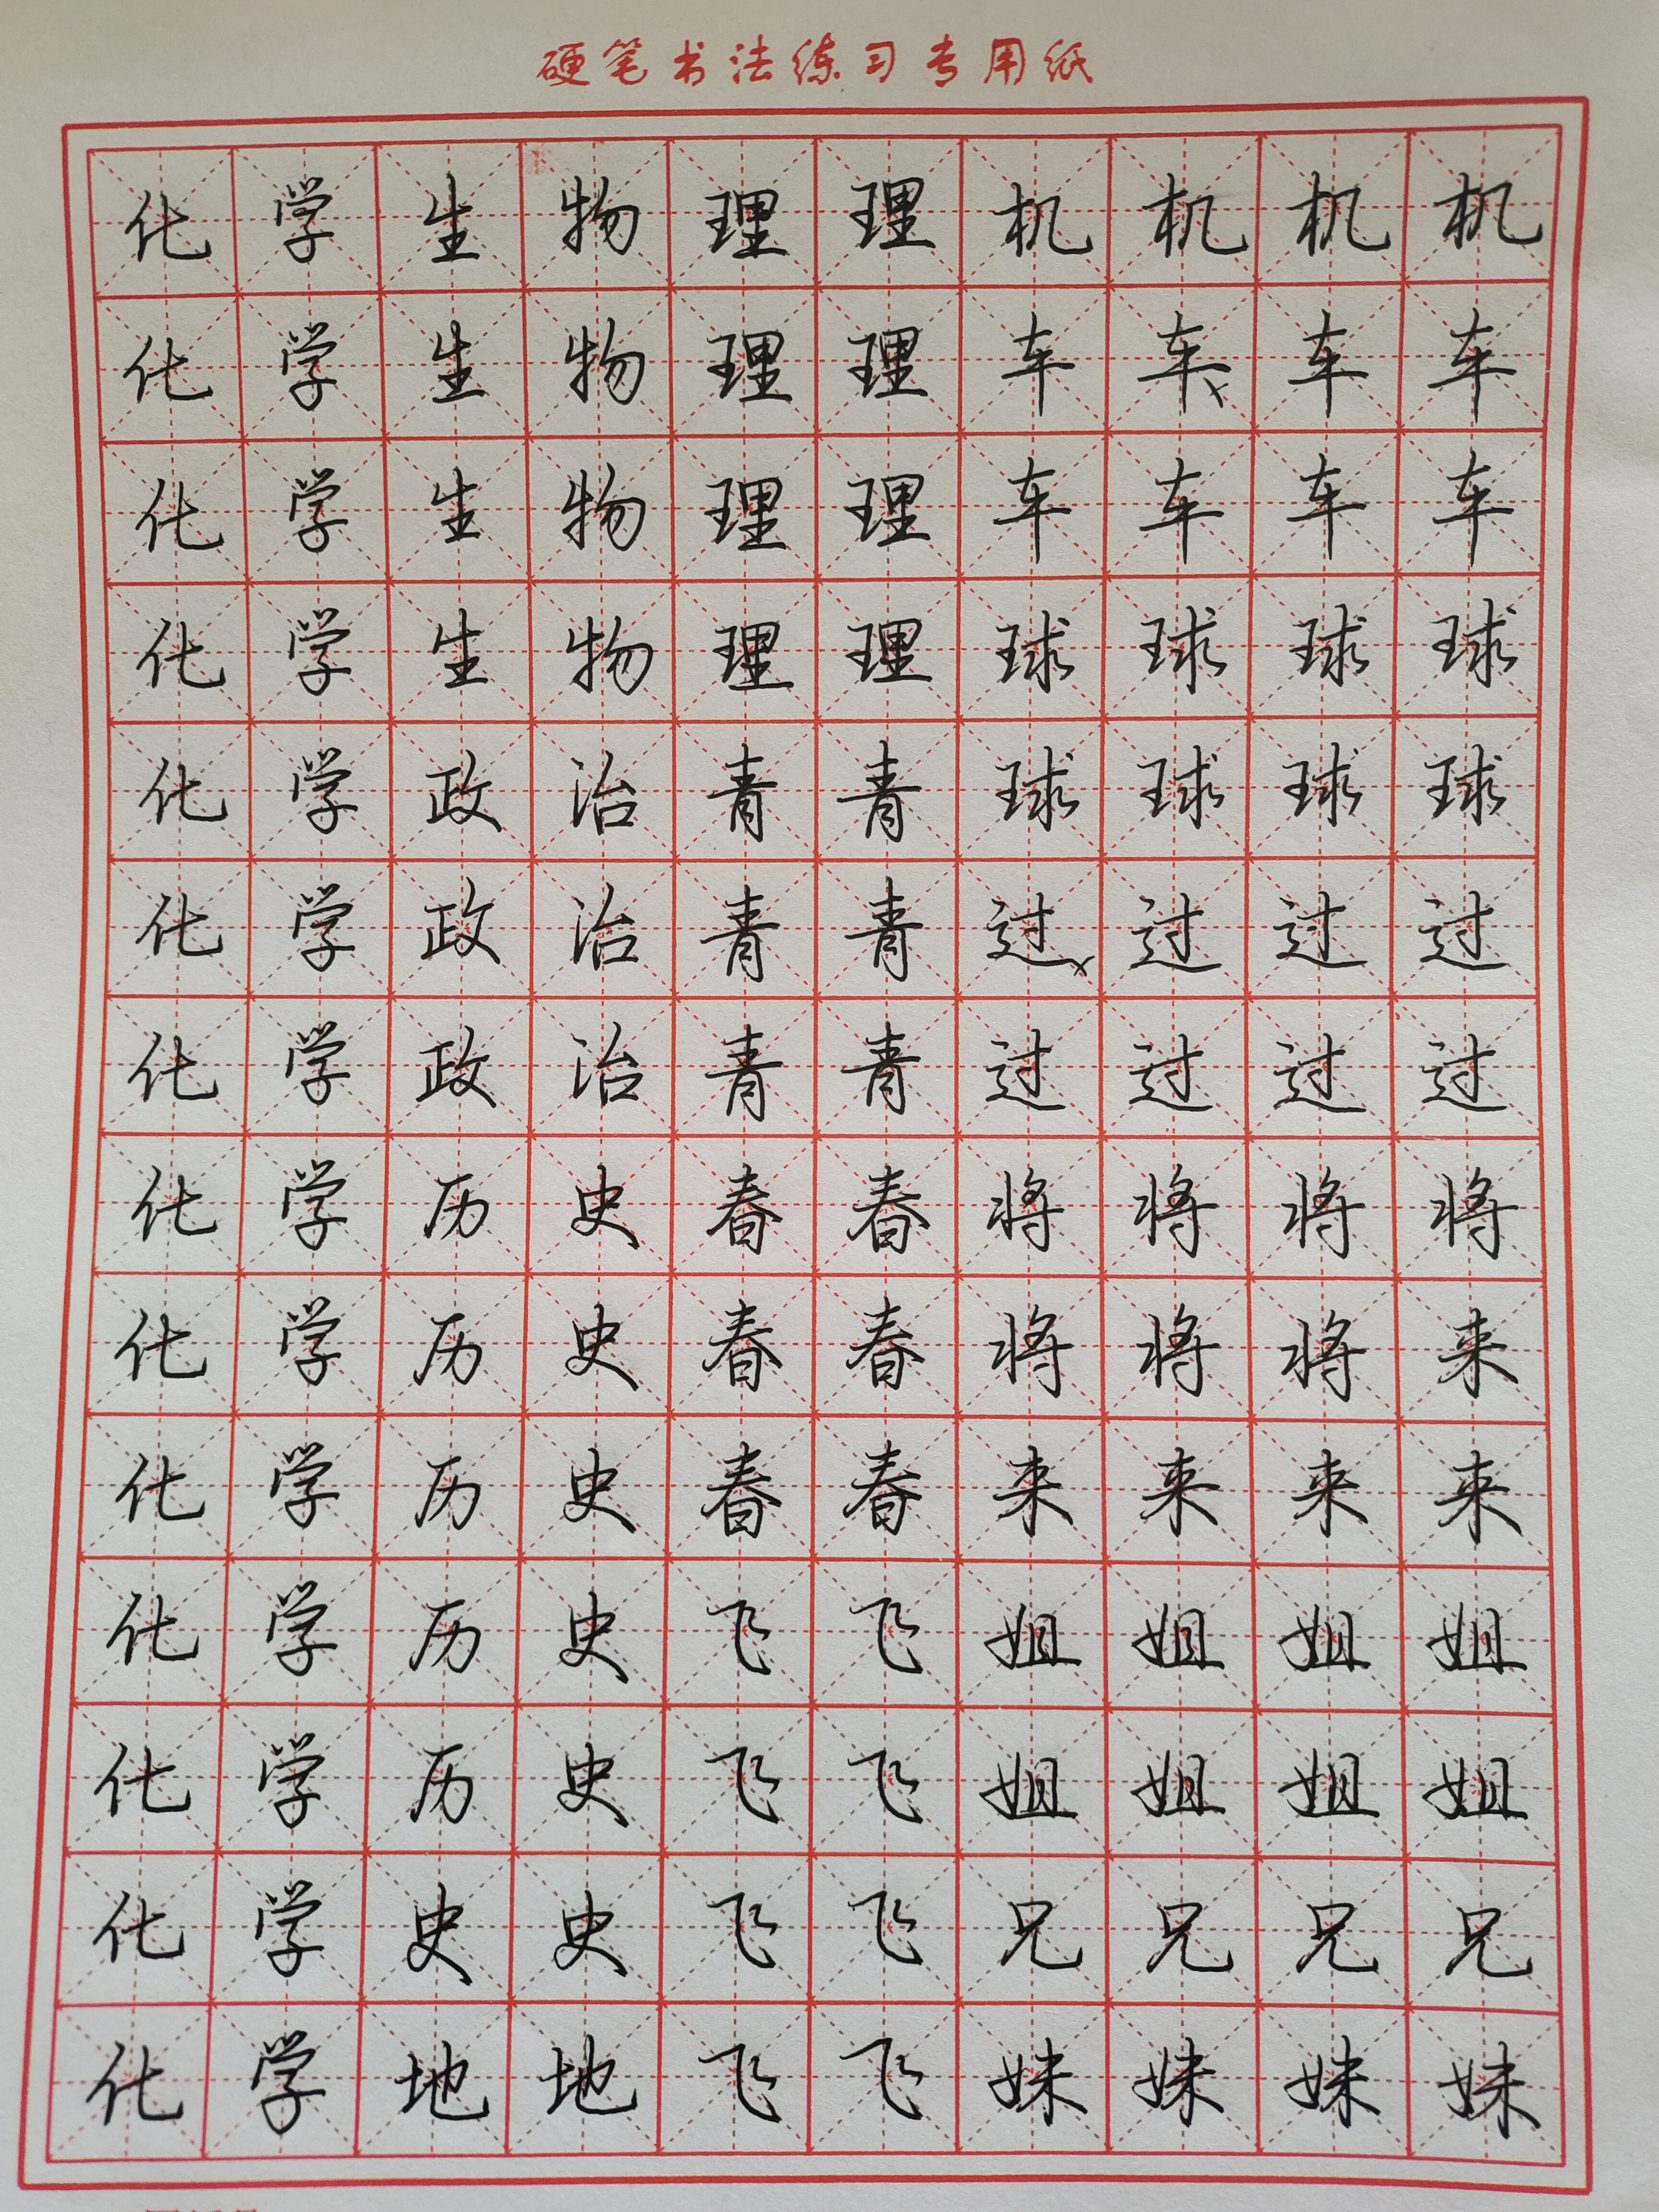 硬笔书法练习专用纸
化学生物理理机机机机
化学生物理理车车车车
化学生物理理车车车车
化学生物理理球球球球
化学政治青青球球球球
化学政治青青过过过过
化学政治青青过过过过
化学历史春春将将将将
化学历史春春将将将来
化学历史春春来来来来
化学历史飞飞姐姐姐姐
化学历史飞飞姐姐姐姐
化学史史飞飞兄兄兄兄
化学地地飞飞妹妹妹妹